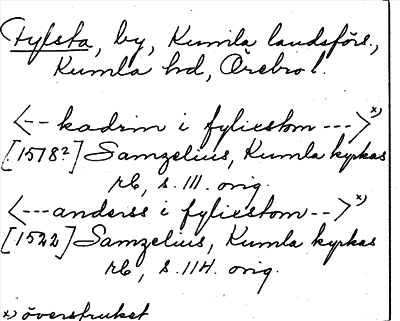 Fylsta, by, Kumla landsförs.,
Kumla hd, Örebro l.
<-- kadrin i fylixstom --->x)
[1518²] Samzelius, Kumla kyrkas
rb, s. 111. orig.
<--- anderss i fylixstom -->x)
[1522] Samzelius, Kumla kyrkas
rb, s. 114. orig.
x) överstruket